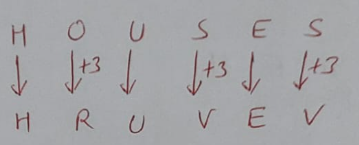 H O U S E S
+3 +3 +3
H R U V E V